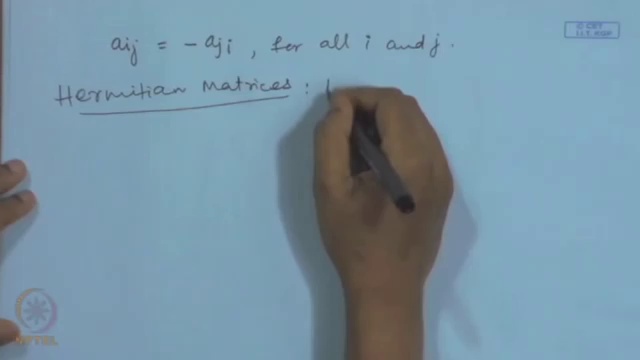 © CET
I.I.T. KGP
aij = - aji , for all i and j.
Hermitian Matrices :
NPTEL